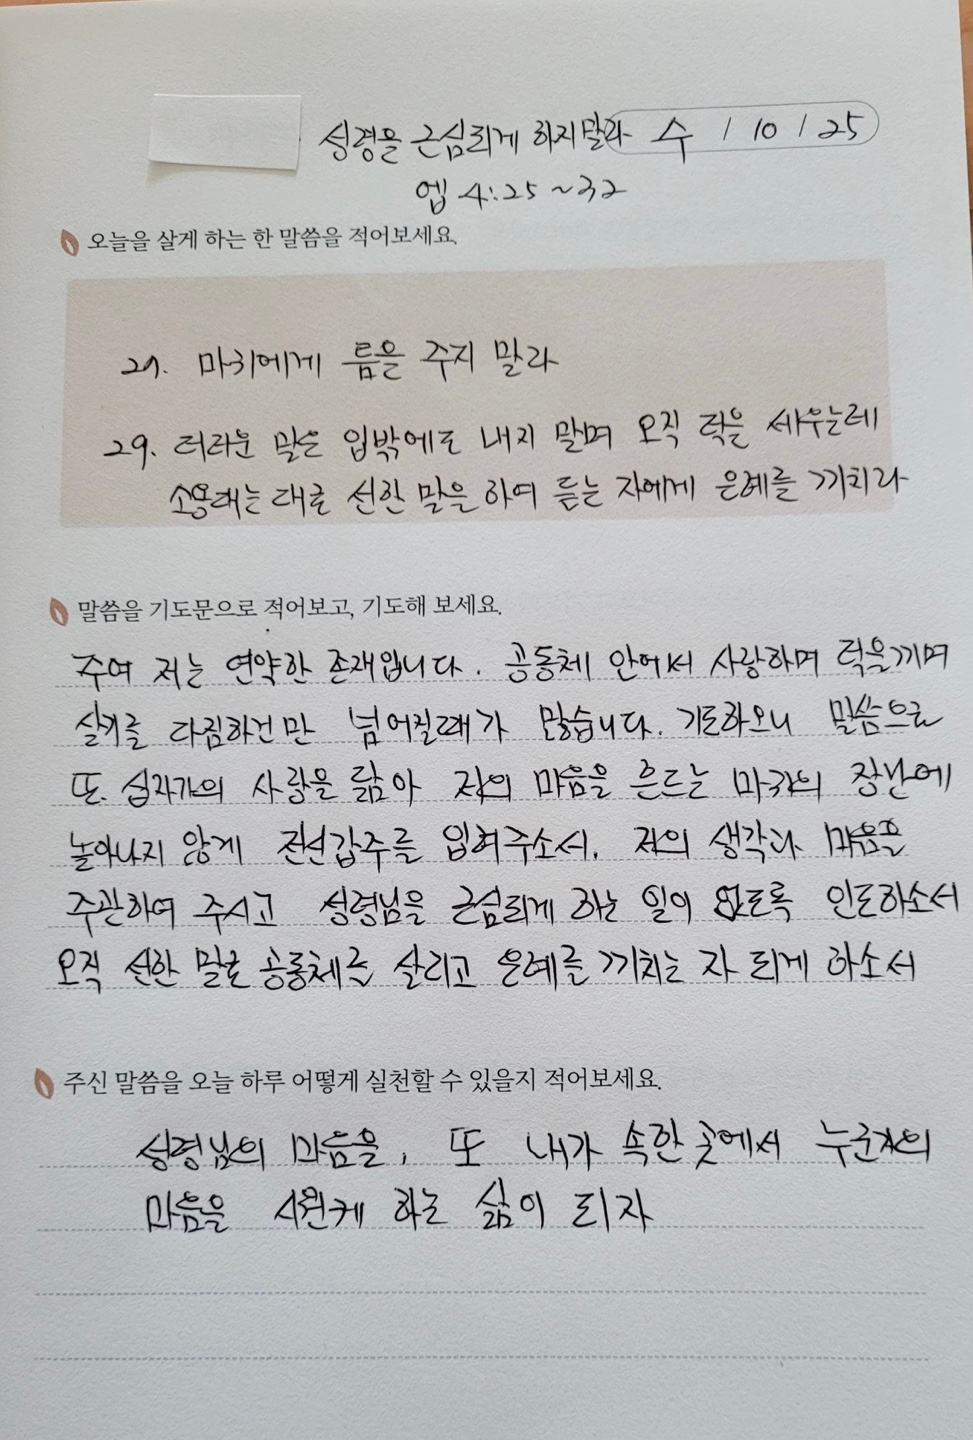 성령을 근심되게 하지말라 수 / 10 / 25
엡 4:25~32
오늘을 살게 하는 한 말씀을 적어보세요.
27. 마귀에게 틈을 주지 말라
29. 더러운 말은 입밖에도 내지 말며 오직 덕을 세우는데
소용되는 대로 선한 말을 하여 듣는 자에게 은혜를 끼치라
말씀을 기도문으로 적어보고, 기도해 보세요.
주여 저는 연약한 존재입니다. 공동체 안에서 사랑하며 덕을끼며
살기를 다짐하건만 넘어질때가 많습니다. 기도하오니 말씀으로
또 십자가의 사랑을 닮아 저의 마음을 흔드는 마귀의 장난에
놀아나지 않게 전신갑주를 입혀주소서. 저의 생각과 마음을
주관하여 주시고 성령님을 근심되게 하는 일이 없도록 인도하소서
오직 선한 말로 공동체를 살리고 은혜를 끼치는 자 되게 하소서
주신 말씀을 오늘 하루 어떻게 실천할 수 있을지 적어보세요.
성령님의 마음을, 또 내가 속한 곳에서 누군가의
마음을 시원케 하는 삶이 되자